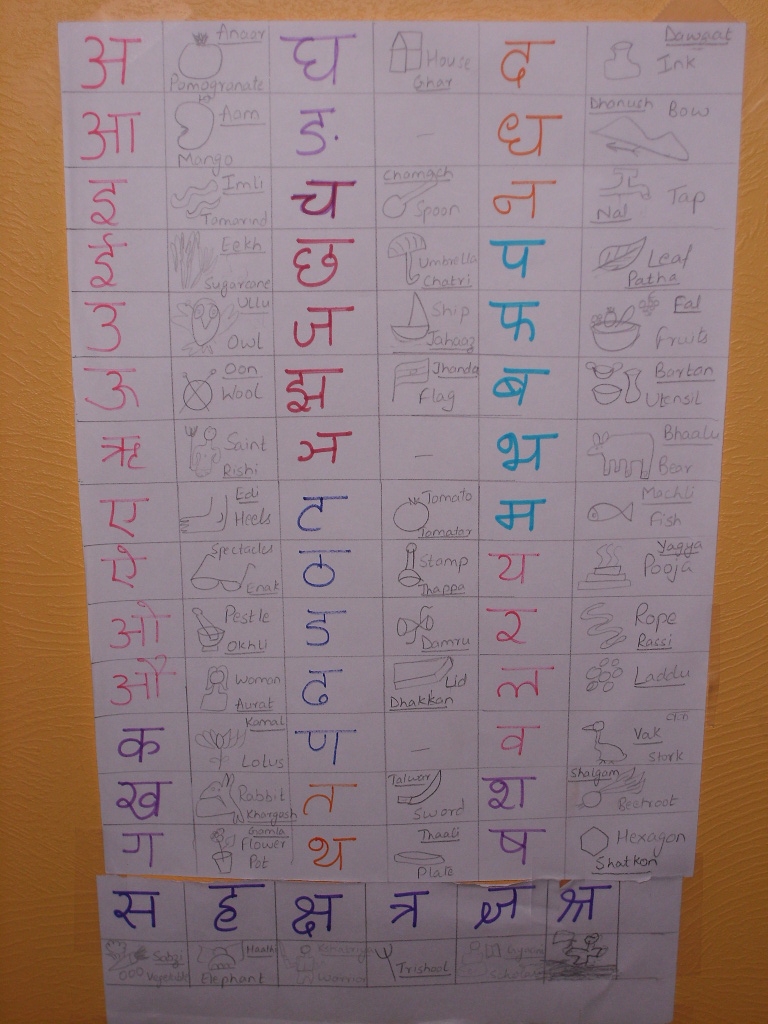 अ Anaar Pomogranate घ House Ghar द Dawaat Ink
आ Aam Mango ङ - ध Dhanush Bow
इ Imli Tamarind च Chamach Spoon न Nal Tap
ई Eekh Sugarcane छ Umbrella Chatri प Leaf Patha
उ Ullu Owl ज Ship Jahaaz फ Fal Fruits
ऊ Oon Wool झ Jhanda Flag ब Bartan Utensil
ऋ Saint Rishi ञ - भ Bhaalu Bear
ए Edi Heels ट Tomato Tamatar म Machli Fish
ऐ Spectacles Enak ठ Stamp Thappa य Yagya Pooja
ओ Pestle Okhli ड Damru र Rope Rassi
औ Woman Aurat ढ Lid Dhakkan ल Laddu
क Kamal Lotus ण - व Vak Stork
ख Rabbit Khargosh त Talwar Sword श Shalgam Beetroot
ग Gamla Flower Pot थ Thaali Plate ष Hexagon Shatkon
स ह क्ष त्र ज्ञ श्र
Sabzi Vegetable Haathi Elephant Warrior Trishool